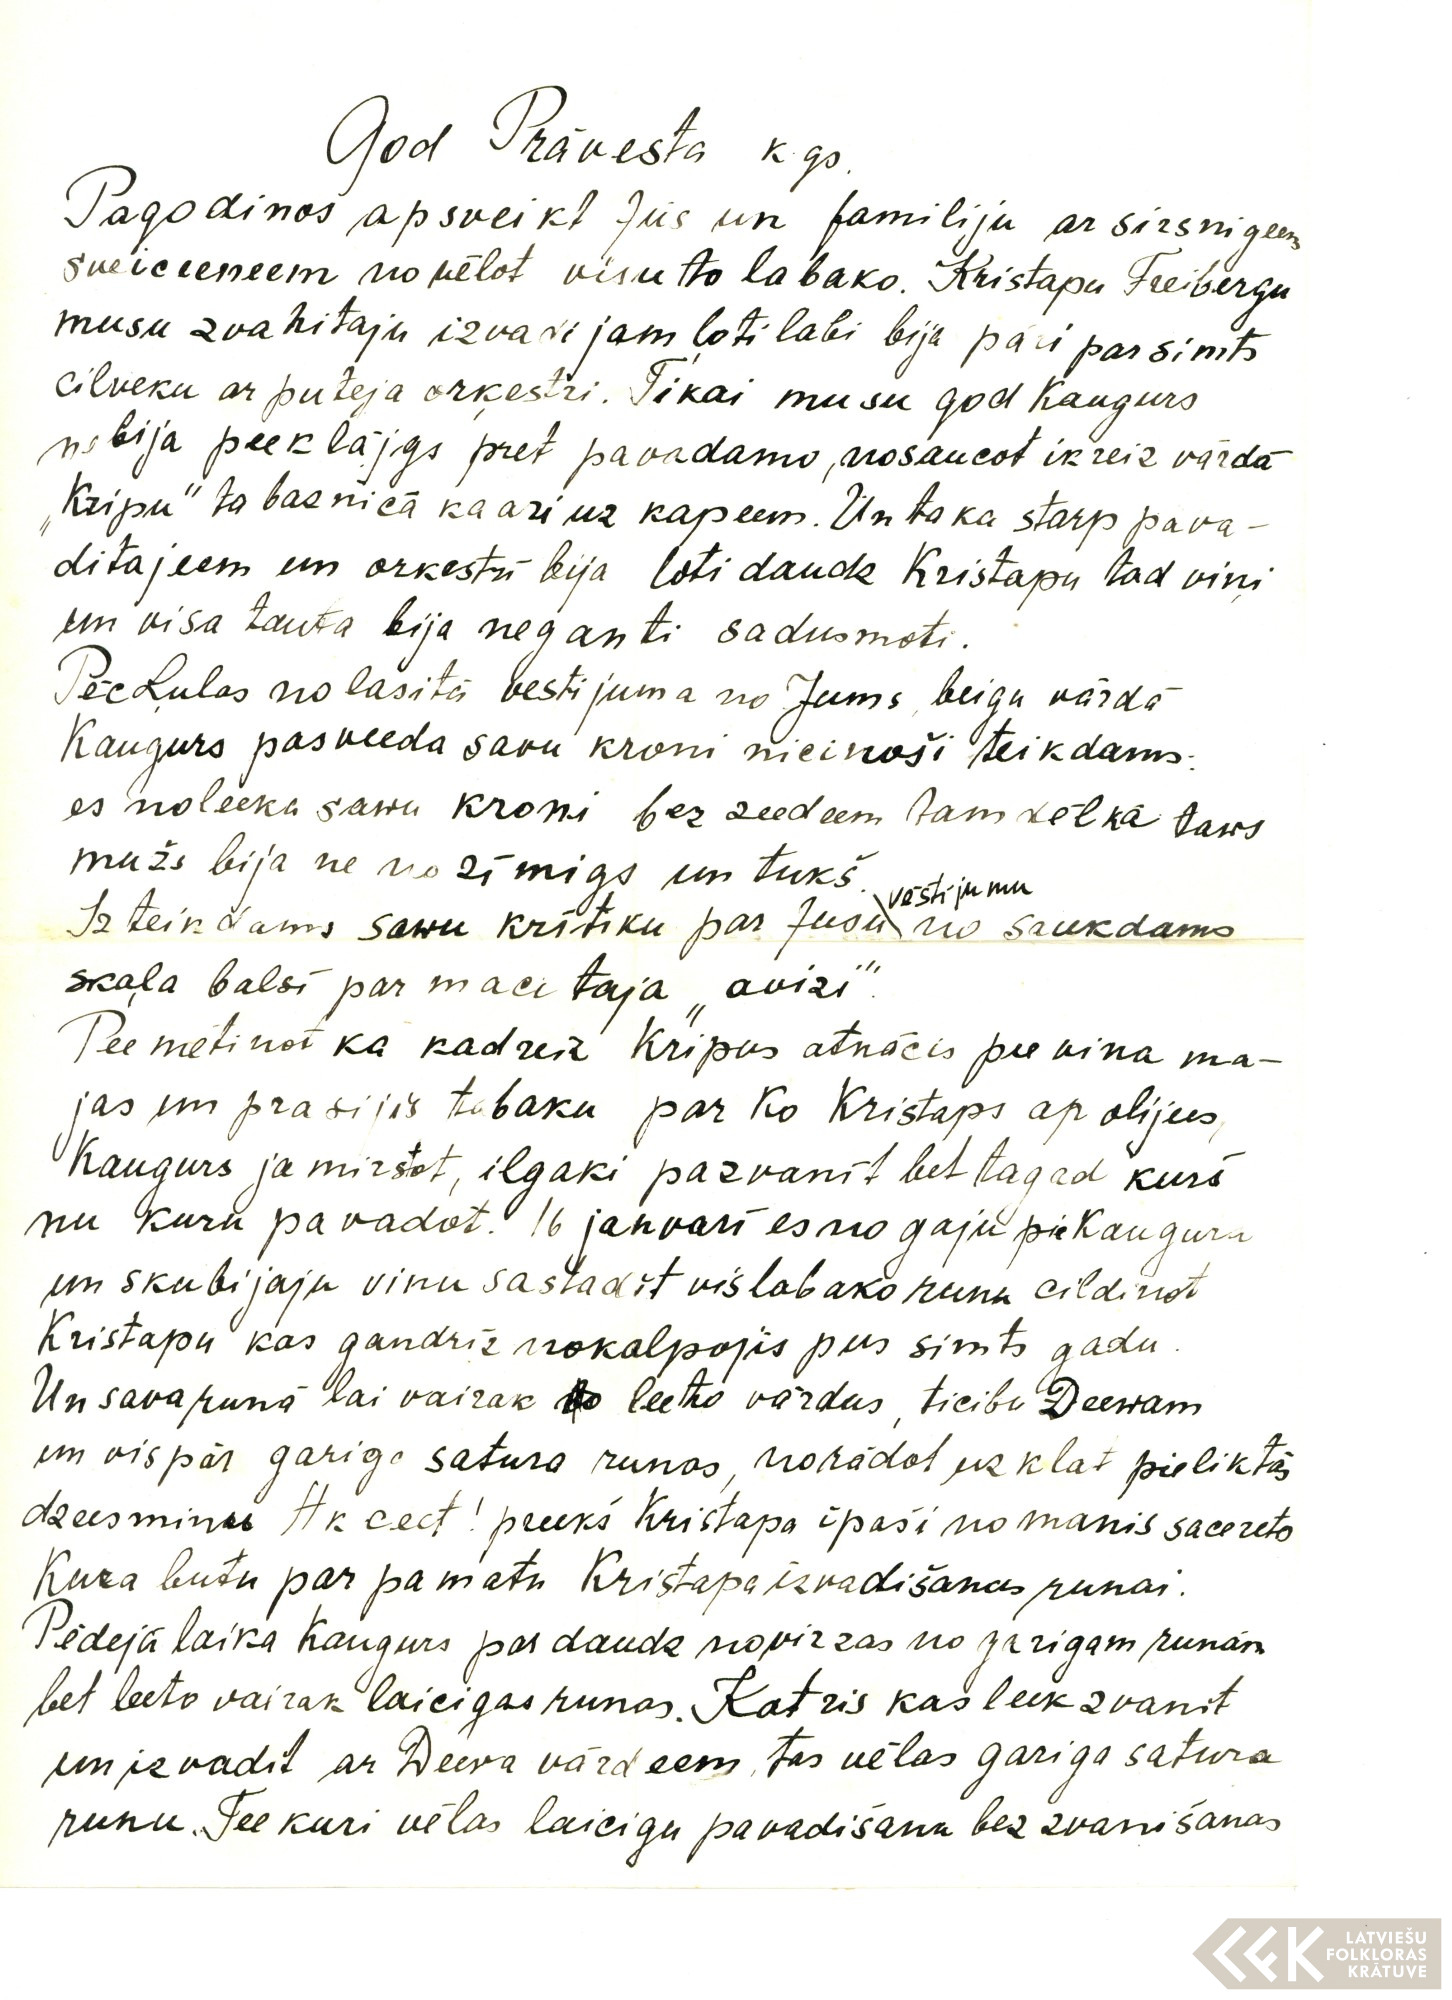 God Prāvesta kgs.
Pagodinos apsveikt Jūs un familiju ar sirsnigeem
sveiceeneem novēlot visu to labako. Kristapu Freibergu
musu zvahitaju izvadijam ļoti labi bija pāri par simts
cilveku ar puteja orķestri. Tikai musu god Kaugurs
nebija peeklājgs pret pavadamo, nosaucot ikreiz vārdā
„Kripu" ta baznicā ka ari uz kapeem. Un ta ka starp pava-
ditajeem un orkestrī bija loti daudz Kristapu tad viņi
un visa tauta bija neganti sadusmoti.
Pēc Lulas nolasitā vestijuma no Jums, beigu vārdā
Kaugurs pasveeda savu kroni nicinoši teikdams:
es noleeku sawu kroni bez zeedeem tamdēl kā taws
mužs bija ne nozīmigs un tukš.
Izteikdams sawu krītiku par Jusu vēstijumu no saukdams
skaļa balsī par macitaja „avizi".
Peemētinot ka kadreiz Kripus atnācis pee vina ma-
jas un prasijis tabaku par ko Kristaps apolijees,
Kaugurs ja mirstot, ilgaki pazvanīt bet tagad kurš
nu kuru pavadot. 16 janvarī es nogaju pie Kaugura
un skubijaju vinu sastadīt vislabako runu cildinot
Kristapu kas gandrīz nokalpojis pus simts gadu.
Un sava runā lai vairak to leeto vārdus, ticibu Deewam
un vispār gariga satura runas, norādot uz klat pieliktās
dzeesminu Ak ceet! preekš Kristapa īpaši no manis sacereto
Kura butu par pamatu Kristapa izvadišanas runai.
Pēdejā laika Kaugurs par daudz novirzas no garigam runām
bet leeto vairak laicigas runas. Katris kas leek zvanīt
un izvadīt ar Deewa vārdeem, tas vēlas gariga satura
runu. Tee kuri vēlas laicigu pavadišanu bez zvanišanas
LATVIEŠU
FOLKLORAS
KRĀTUVE